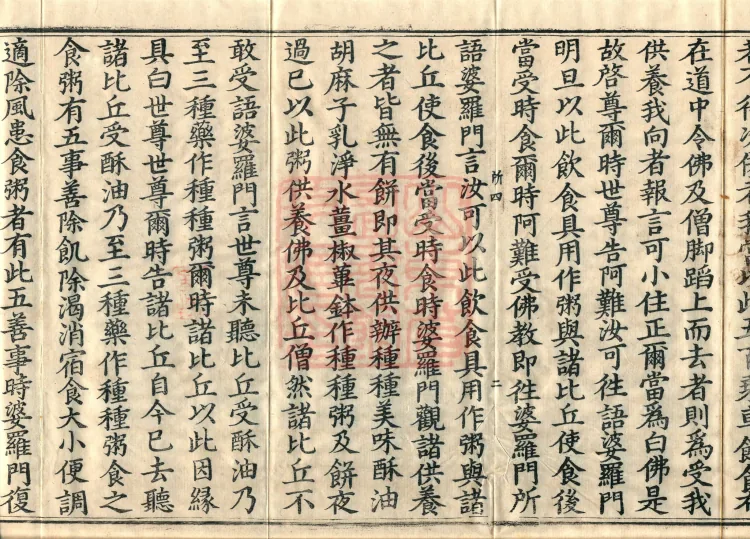 在道中令佛及僧脚蹈上而去者則爲受我
供養我向者報言可小住正爾當爲白佛是
故啓尊爾時世尊告阿難汝可徃語婆羅門
明旦以此飲食具用作粥與諸比丘使食後
當受時食爾時阿難受佛教即徃婆羅門所
所四
二
語婆羅門言汝可以此飲食具用作粥與諸
比丘使食後當受時食時婆羅門觀諸供養
之者皆無有餅即其夜供辦種種美味酥油
胡麻子乳淨水薑椒蓽鉢作種種粥及餅夜
過已以此粥供養佛及比丘僧然諸比丘不
敢受語婆羅門言世尊未聽比丘受酥油乃
至三種藥作種種粥爾時諸比丘以此因緣
具白世尊世尊爾時告諸比丘自今已去聽
諸比丘受酥油乃至三種藥作種種粥食之
食粥有五事善除飢除渴消宿食大小便調
適除風患食粥者有此五善事時婆羅門復